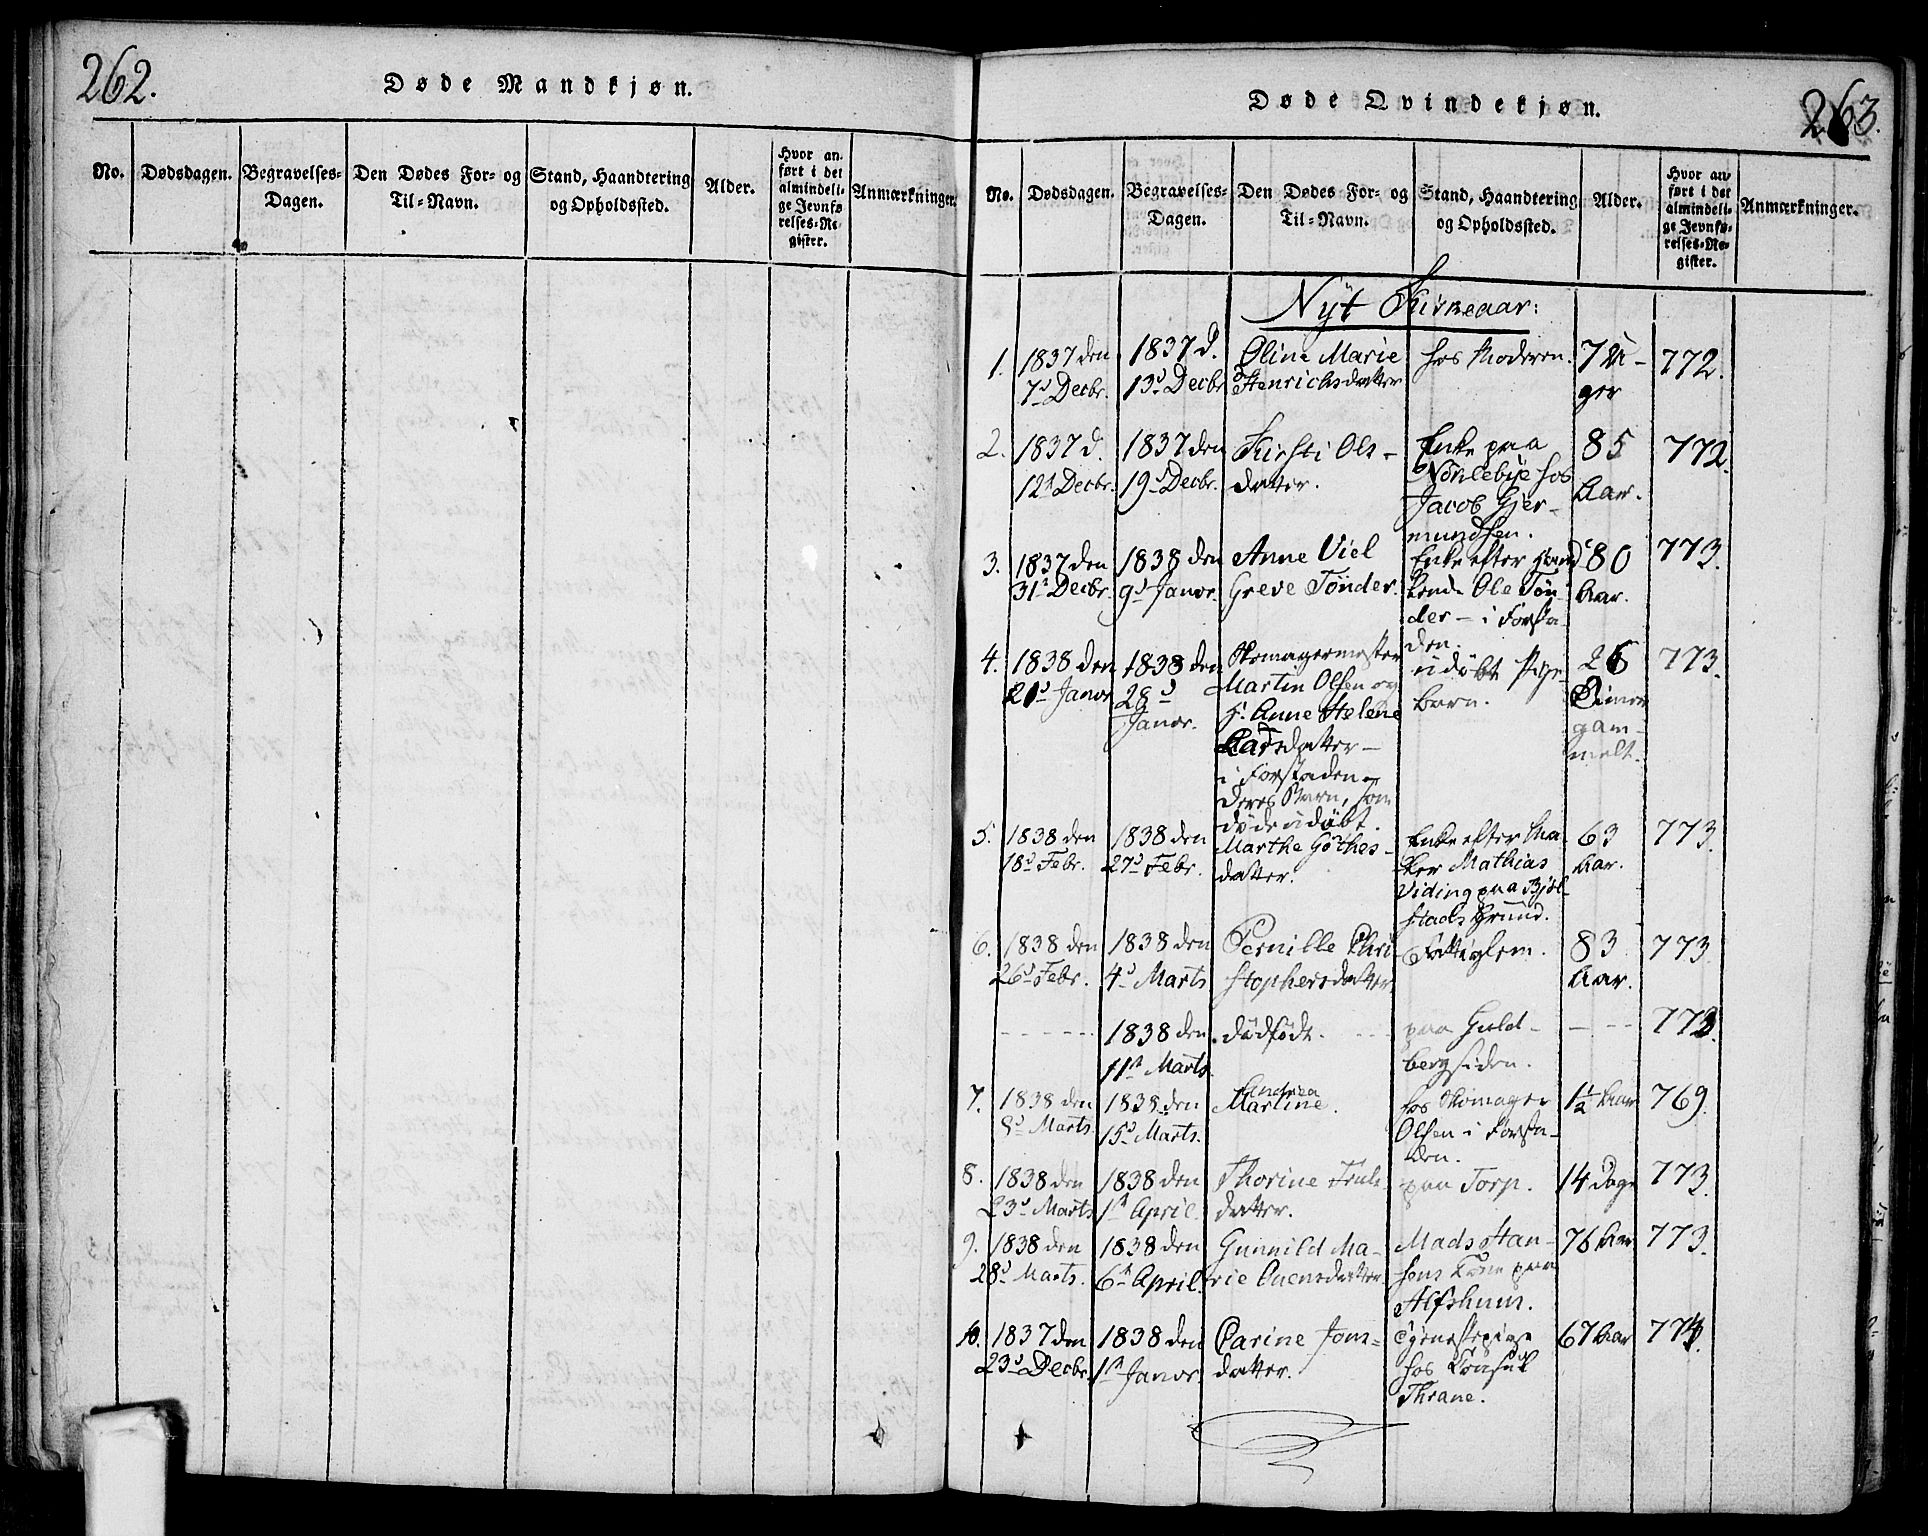 262.
Døde Mandkjøn.
No.
Dødsdagen.
Begravelses-
Dagen.
Den Dødes For- og
Til-Navn.
Stand, Haandtering
og Opholdssted.
Alder.
Hvor an-
ført i det
almindeli-
ge Jevnfø-
relses-Re-
gister.
Anmærkninger.
Døde Qvindekjøn.
263.
No.
Dødsdagen.
Begravelses-
Dagen.
Den Dødes For- og
Til-Navn.
Stand, Haandtering
og Opholdssted.
Alder.
Hvor an-
ført i det
almindeli-
ge Jevnfø-
relses-Re-
gister.
Anmærkninger.
Nyt Kirkeaar:
1.
1837 den
7d Decbr.
1837 d.
13d Decbr
Oline Marie
Henrichsdatter
hos Moderen.
7 U-
ger
772.
2.
1837 d.
12t Decbr.
1837 den
19d Decbr.
Kirsti Ols-
datter.
Enke paa
Nöklebye hos
Jacob Gjer-
mundsen.
85
Aar.
772.
3.
1837 den
31t Decbr.
1838 den
9d Janvr.
Anne Viel
Greve Tönder.
Enke efter
Ole Tön-
der - i Forsta-
den.
80
Aar.
773.
4.
1838 den
21d Janvr
1838 den
28d
Janvr.
Skomagermester
Martin Olsen og
H. Anne Helene
Larsdatter -
i Forstaden -
deres Barn, som
döde udöbt.
udöbt Pige-
barn.
26
Timer
gam-
melt.
773.
5.
1838 den
18d Febr.
1838 den
27d Febr.
Marthe Göthes-
datter.
Enke efter Ma-
ker Mathias
Viding paa Bjöl-
stads Grund.
63
Aar.
773.
6.
1838 den
26d Febr.
1838 den
4d Marts
Pernille Chri-
stophersdatter
Fattiglem.
83
Aar.
773.
1838 den
11t Marts.
dödfödt.
paa Guld-
bergsiden.
773.
7.
1838 den
8d Marts.
1838 den
15d Marts.
Andrea
Martine.
hos Skomager
Olsen i Forsta-
den.
1½ Aar
769.
8.
1838 den
23d Marts
1838 den
1t April.
Thorine Truls-
datter.
paa Torp.
14 Dage
773.
9.
1838 den
28d Marts.
1838 den
6t April.
Gunnild Ma-
rie Evensdatter
Mads Han-
sens Kone paa
Alfshuus.
76 Aar
773.
10.
1837 den
23d Decbr.
1838 den
1t Janvr
Carine Jons-
datter.
Tjenestepige
hos Consul
Thrane.
67 Aar
774.